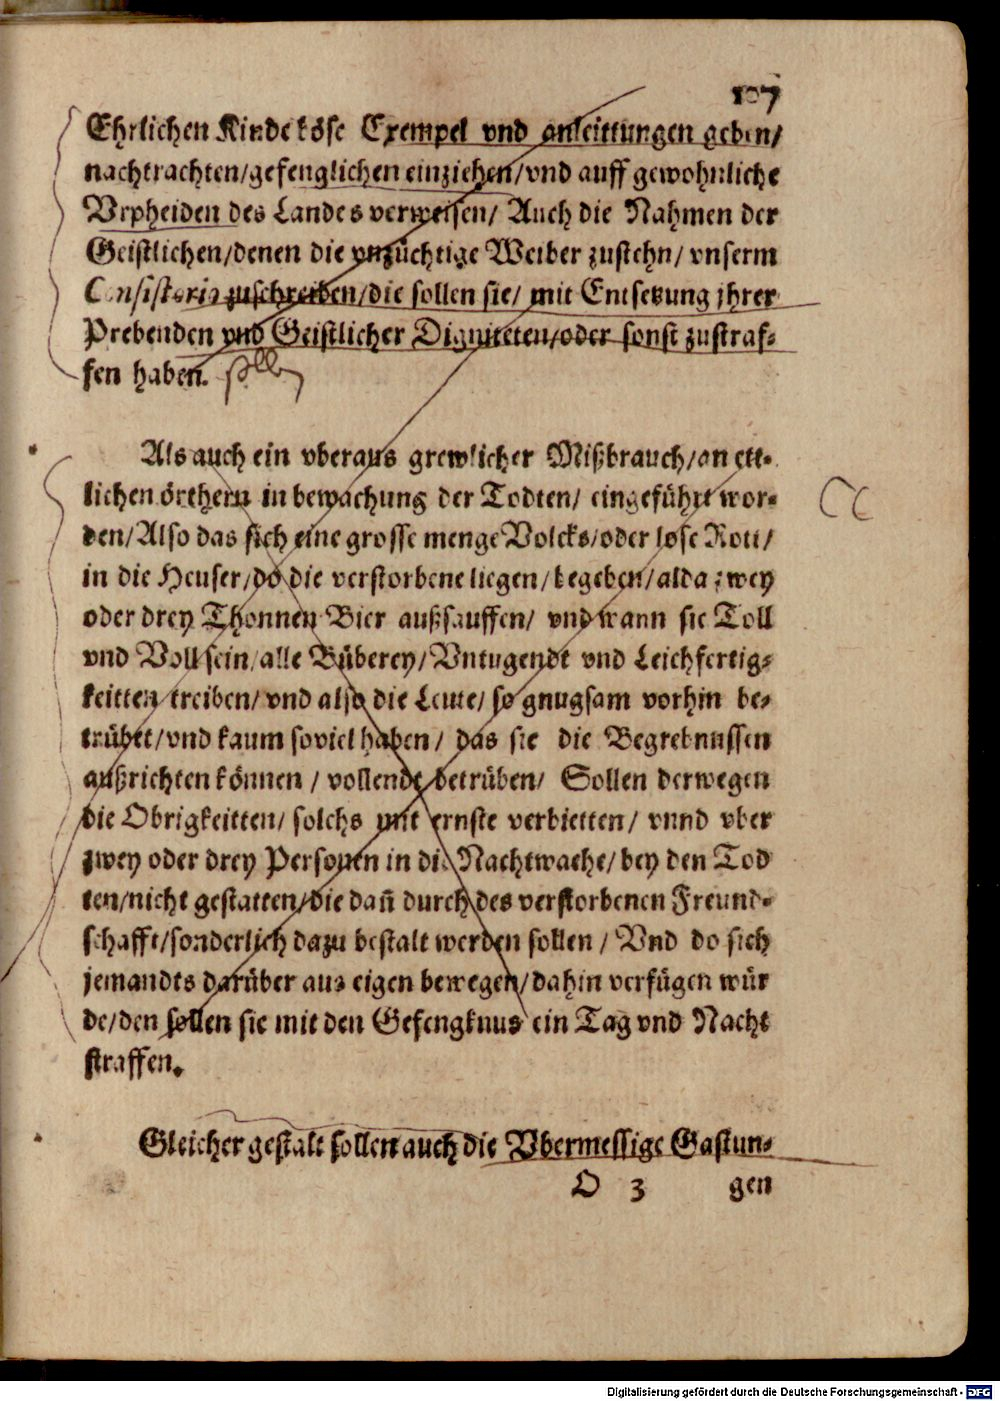 107
Ehrlichen Kinde köse Exempel vnd anleittungen geben/
nachtrachten/gefenglichen einziehen/vnd auff gewohnliche
Vrpheiden des Landes verweisen/ Auch die Nahmen der
Geistlichen/denen die vnzüchtige Weiber zustehn/ vnserm
Consistorio zuschreiben/die sollen sie/ mit Entsetzung jhrer
Prebenden vnd Geistlicher Digniteten/oder sonst zustraf-
fen haben. sollen
Als auch ein vberaus grewlicher Mißbrauch/an ett-
lichen örthern in bewachung der Todten/ eingeführt wor-
den/Also das sich eine grosse menge Volcks/oder lose Rott/
in die Heuser/do die verstorbene liegen/begeben/alda zwey
oder drey Thonnen Bier außsauffen/ vnd wann sie Toll
vnd Voll sein/alle Büberey/Vntugendt vnd Leichfertig-
keitten treiben/vnd also die Leute/ so gnugsam vorhin be-
trübet/vnd kaum soviel haben/ das sie die Begrebnussen
außrichten können/ vollendt betrüben/ Sollen derwegen
die Obrigkeitten/ solchs mit ernste verbietten/ vnnd vber
zwey oder drey Personen in die Nachtwache/bey den Tod
ten/nicht gestatten/die dañ durch des verstorbenen Freund-
schafft/sonderlich dazu bestalt werden sollen/ Vnd do sich
jemandts darüber aus eigen bewegen/dahin verfügen wür
de/den sollen sie mit den Gefengknus ein Tag vnd Nacht
straffen.
Gleicher gestalt sollen auch die Vbermessige Gastun-
O 3 gen
Digitalisierung gefördert durch die Deutsche Forschungsgemeinschaft - DFG